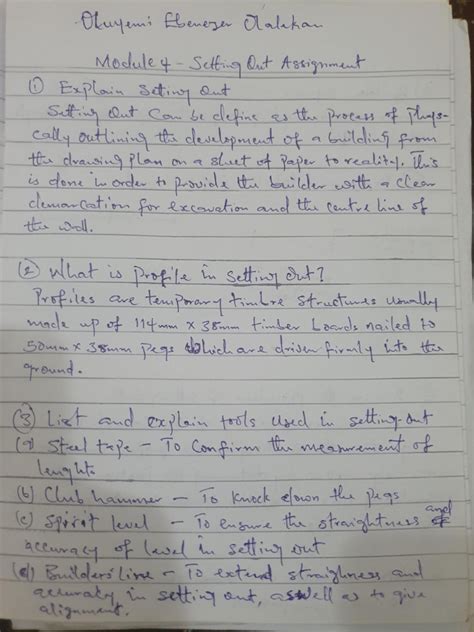 Oluyemi Ebenezer Olalekan
Module 4 - Setting Out Assignment
(1) Explain Setting Out
Setting Out Can be define as the process of physi-
cally outlining the development of a building from
the drawing plan on a sheet of paper to reality. This
is done in order to provide the builder with a clear
demarcation for excavation and the centre line of
the wall.
(2) What is profile in setting out?
Profiles are temporary timbre structures usually
made up of 114mm x 38mm timber boards nailed to
50mm x 38mm pegs which are driven firmly into the
ground.
(3) List and explain tools used in setting-out
(a) Steel tape - To confirm the measurement of
lenghts
(b) Club hammer - To knock down the pegs
(c) Spirit level - To ensure the straightness and
accuracy of level in setting out
(d) Builders' Line - To extend straighness and
accuraty in setting out, aswell as to give
alignment.